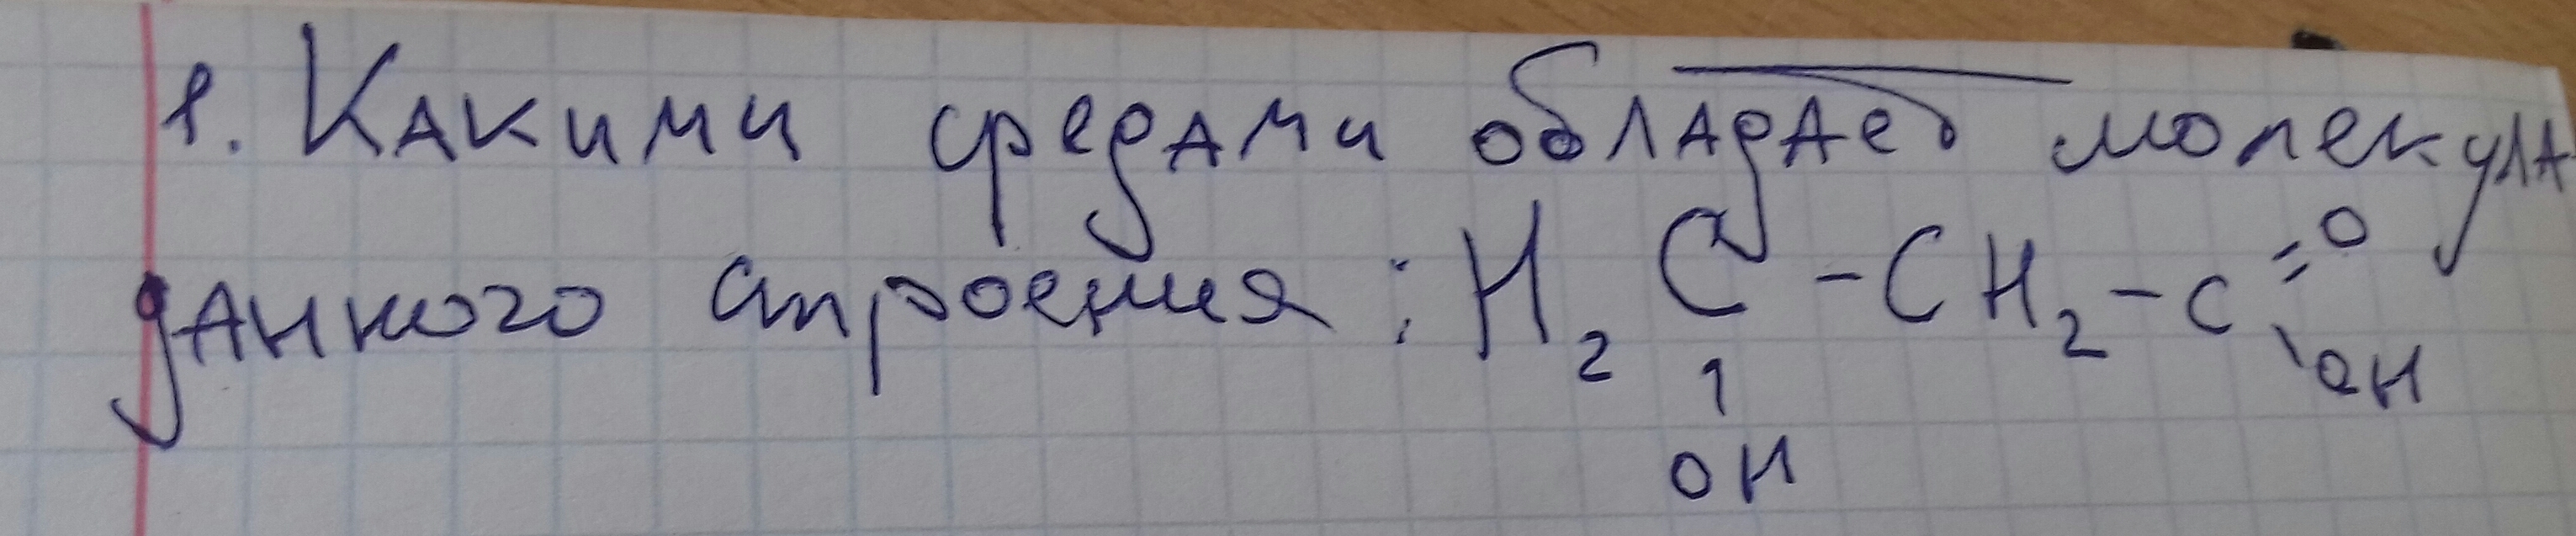 1. Какими средами обладает молекула
данного строения: H₂C-CH₂-C=O
OH
OH